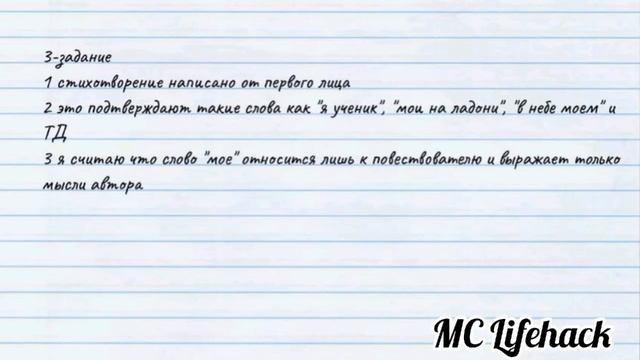 3-задание
1 стихотворение написано от первого лица
2 это подтверждают такие слова как "я ученик", "мои на ладони", "в небе моем" и
ТД
3 я считаю что слово "мое" относится лишь к повествователю и выражает только
мысли автора
MC Lifehack